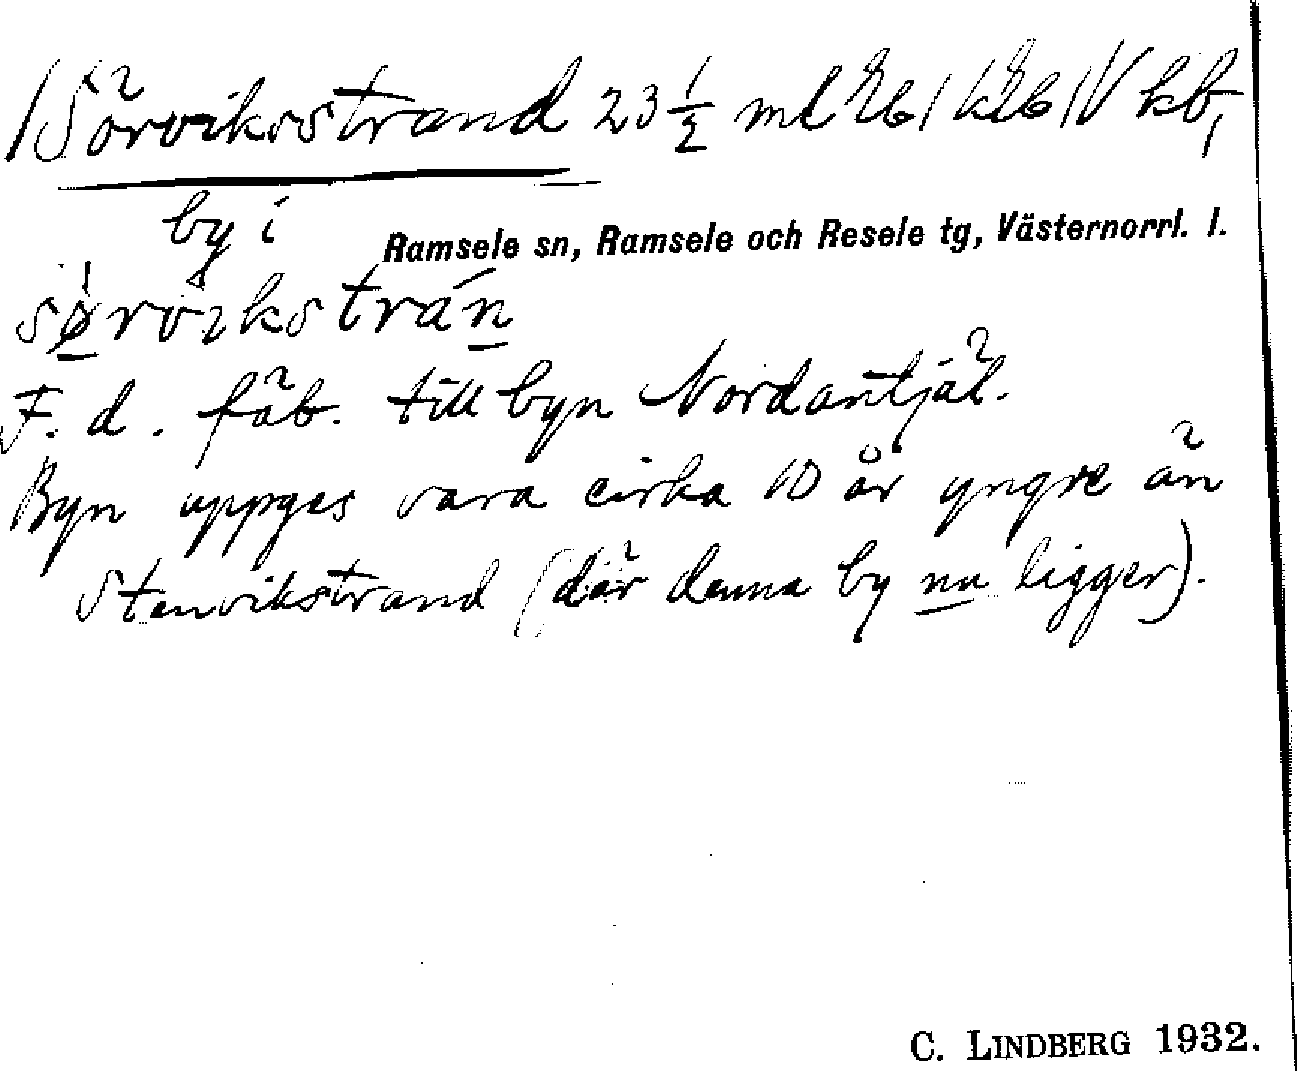 Sörviksstrand 23 1/2 ml
by i Ramsele sn, Ramsele och Resele tg, Västernorrl. l.
F. d. fäb. till byn Nordantjäl.
Byn uppges vara cirka 10 år yngre än
Stenvikstrand (där denna by nu ligger).
C. LINDBERG 1932.